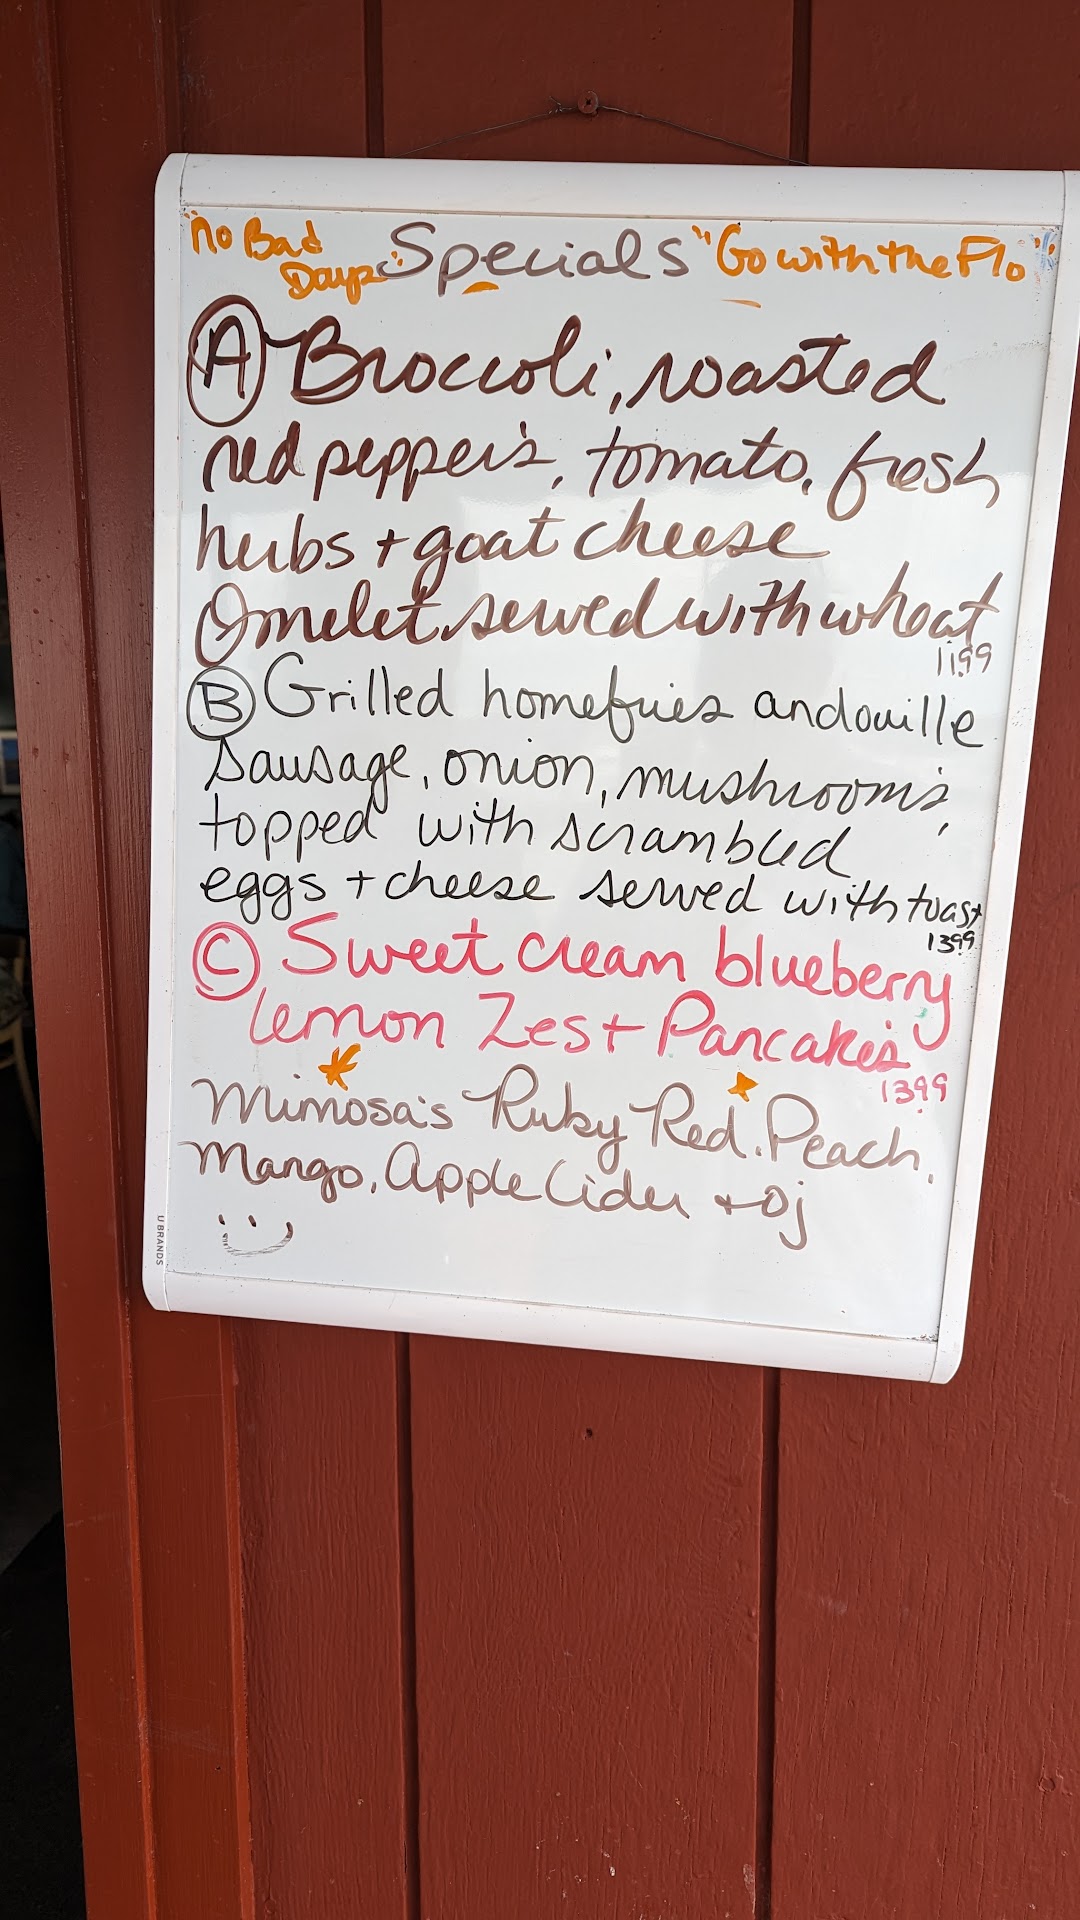 "no Bad Days" Specials "Go with the Flo"
A Broccoli, roasted
red pepper's, tomato, fresh
herbs + goat cheese
Omelet served with wheat
1199
B Grilled homefries andouille
sausage, onion, mushroom's,
topped with scrambled
eggs + cheese served with toast
1399
C Sweet cream blueberry
lemon Zest Pancake's
1399
Mimosa's Ruby Red, Peach,
Mango, Apple Cider + OJ
U BRANDS